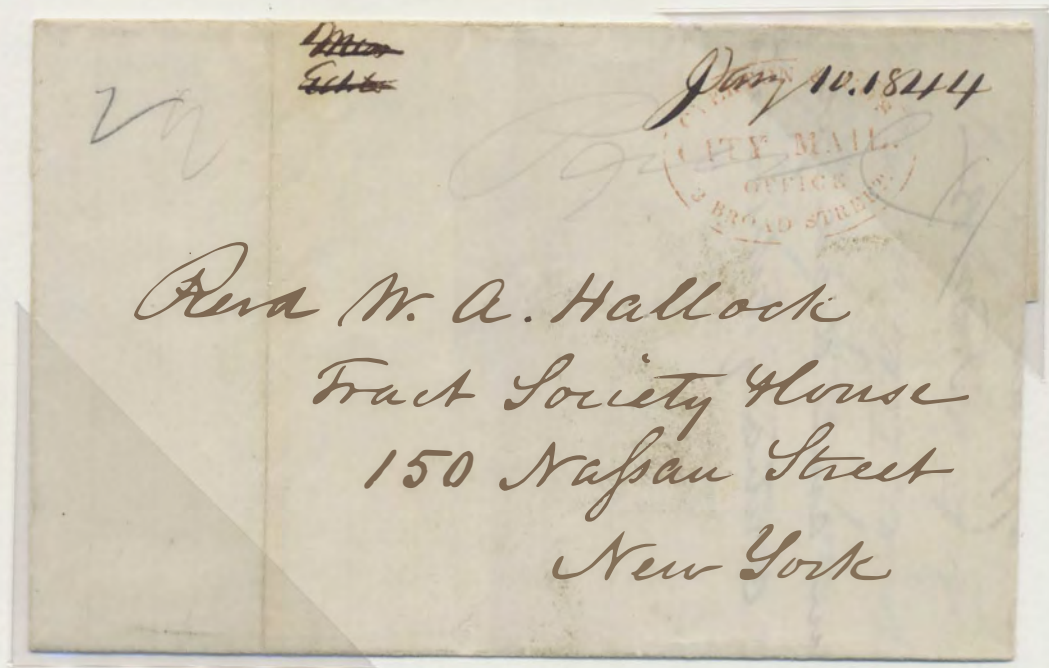 Jany 10. 1844
CITY MAIL.
OFFICE
BROAD STREET.
Revd W. A. Hallock
Tract Society House
150 Naſsau Street
New York